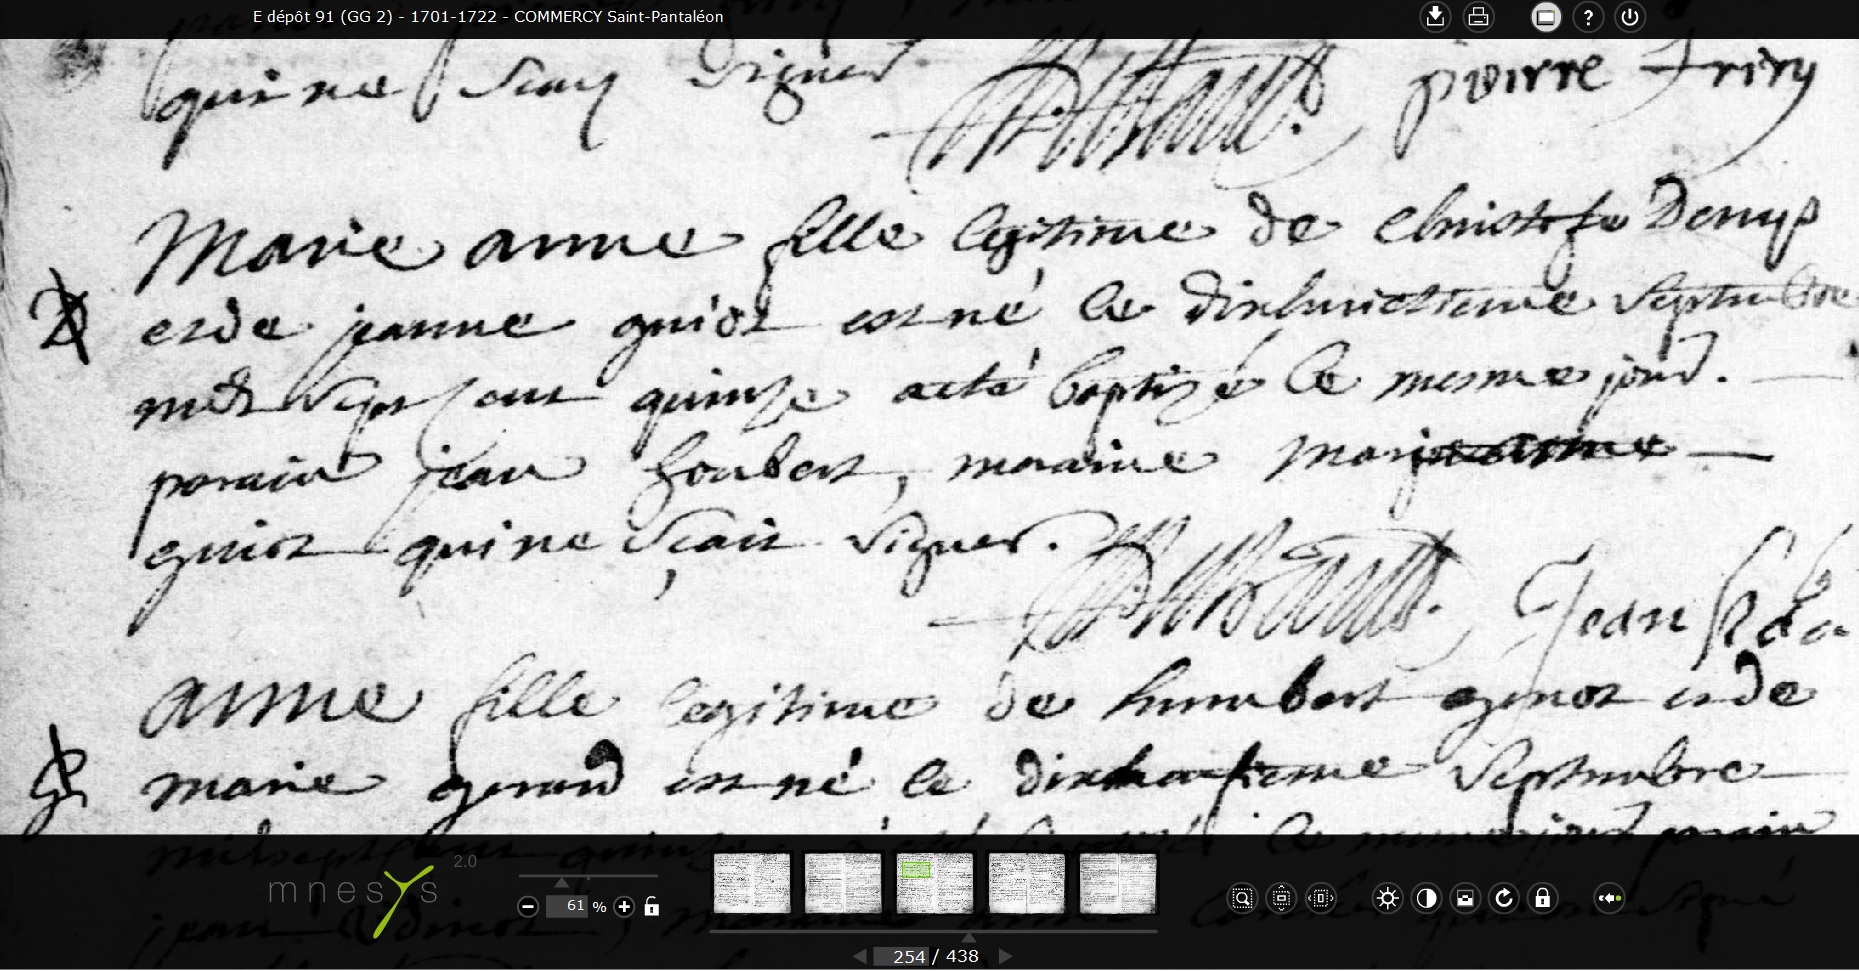 E dépôt 91 (GG 2) - 1701-1722 - COMMERCY Saint-Pantaléon
?
qui ne scay signer
pierre friry
Marie anne fille legitime de christofe Denys
et de jeanne guiot est né le dixhuictieme septembre
mil sept cent quinze a eté baptizé le mesme jour.
parain jean joubert, maraine marie
guiot qui ne sçait signer.
Jean
anne fille legitime de humbert genot et de
marie gerard est né le septembre
mil sept cent quinze a eté baptizé le mesme jour parain
jean
mnesys 2.0
61 %
254 / 438